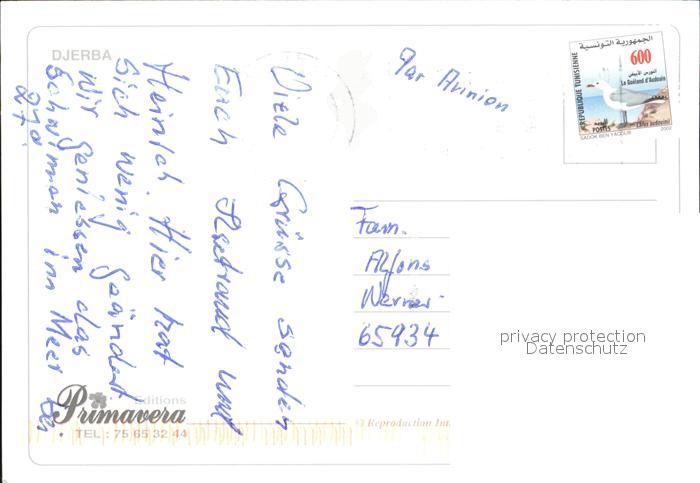 DJERBA
Viele Grüsse senden
Euch Hertraud und
Heinrich. Hier hat
sich wenig geändert
wir geniessen das
Schwimmen inn Meer
27°
Par Avinion
الجمهورية التونسية
REPUBLIQUE TUNISIENNE
600
النورس الأبيض
Le Goéland d'Audouin
Larus audouinii
POSTES
SADOK BEN YAGOUB
2002
Fam.
Alfons
Werner
65934
privacy protection
Datenschutz
Editions
Primavera
TEL : 75 65 32 44
© Reproduction Int